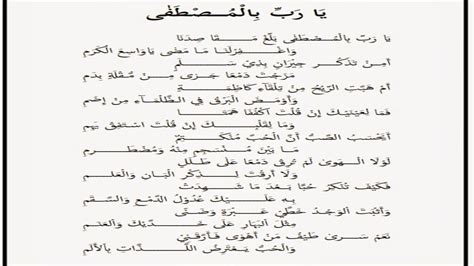 يَا رَبِّ بِالْمُـــصْـطَفٰى
يَا رَبِّ بِالْمُصْطَفٰى بَلِّغْ مَـــقَـا صِدَنَا
وَاغْـــفِرْلَنَا مَا مَضٰى يَاوَاسِعَ الْكَرَمِ
أَمِنْ تَذَكُّـرِ جِيْرَانٍ بِذِيْ سَـــلَـــمٍ
مَزَجْتَ دَمْعًا جَرٰى مِنْ مُقْلَةٍ بِدَمِ
أَمْ هَبَّتِ الرِّيْحُ مِنْ تِلْقَاءِ كَاظِمَـــةٍ
وَأَوْمَضَ الْبَرْقُ فِي الظَّلْمَـــاءِ مِنْ إِضَمِ
فَمَا لِعَيْنَيْكَ إِنْ قُلْتَ اكْفُفَا هَمَـــتَا
وَمَا لِقَلْبِـــكَ إِنْ قُلْتَ اسْتَفِقْ يَهِمِ
أَيَحْسَبُ الصَّبُّ أَنَّ الْحُبَّ مُنْكَـــتِـــمٌ
مَا بَيْنَ مُـــنْسَـــجِمٍ مِنْهُ وَمُضْـــطَـــرِمِ
لَوْلَا الْهَـــوٰى لَمْ تُرِقْ دَمْعًا عَلٰى طَلَلٍ
وَلَا أَرِقْتَ لِـــذِكْرِ الْبَانِ وَالْعَلَمِ
فَكَيْفَ تُنْكِرُ حُبًّا بَعْدَ مَا شَـــهِدَتْ
بِهِ عَلَـــيْكَ عُدُوْلُ الدَّمْعِ وَالسَّـــقَمِ
وَأَثْبَتَ الْوَجْدُ خَطَّيْ عَـــبْرَةٍ وَضَنٰى
مِثْلَ الْبَهَارِ عَلٰى خَـــدَّيْكَ وَالْعَنَمِ
نَعَمْ سَـــرٰى طَيْفُ مَنْ أَهْوٰى فَـــأَرَّقَنِيْ
وَالْحُبُّ يَعْـــتَرِضُ اللَّـــذَّاتِ بِالْأَلَمِ